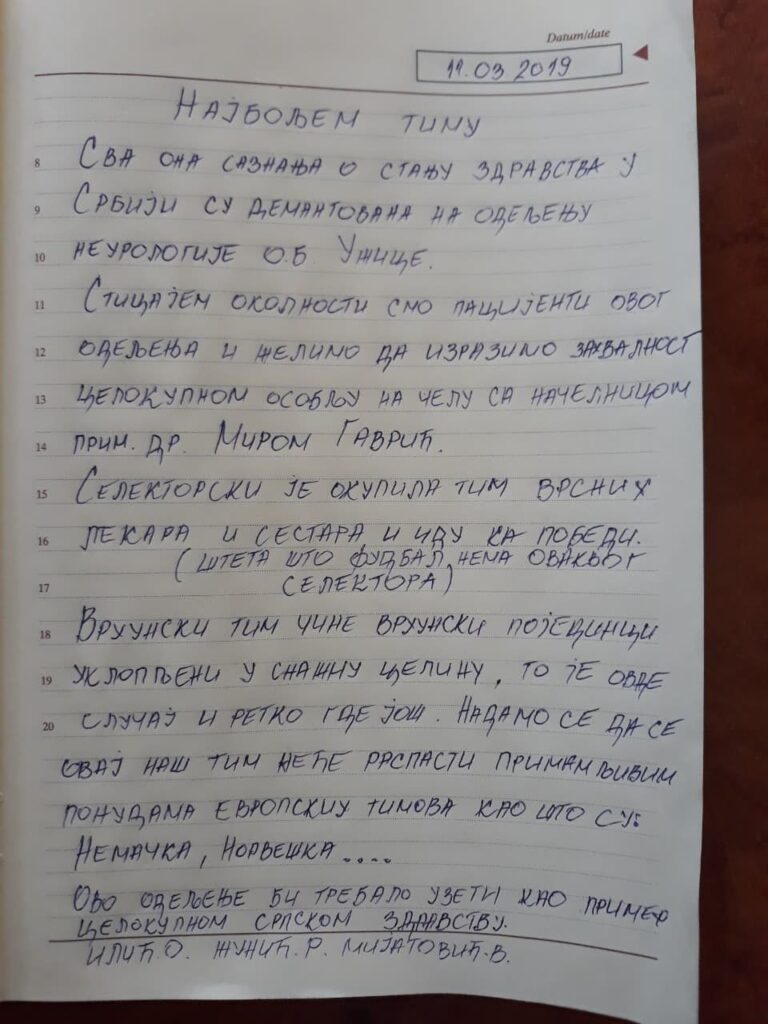 Datum/date
11.03 2019
НАЈБОЉЕМ ТИМУ
8 СВА ОНА САЗНАЊА О СТАЊУ ЗДРАВСТВА У
9 СРБИЈИ СУ ДЕМАНТОВАНА НА ОДЕЉЕЊУ
10 НЕУРОЛОГИЈЕ О.Б УЖИЦЕ.
11 СТИЦАЈЕМ ОКОЛНОСТИ СМО ПАЦИЈЕНТИ ОВОГ
12 ОДЕЉЕЊА И ЖЕЛИМО ДА ИЗРАЗИМО ЗАХВАЛНОСТ
13 ЦЕЛОКУПНОМ ОСОБЉУ НА ЧЕЛУ СА НАЧЕЛНИЦОМ
14 ПРИМ. ДР. МИРОМ ГАВРИЋ.
15 СЕЛЕКТОРСКИ ЈЕ ОКУПИЛА ТИМ ВРСНИХ
16 ЛЕКАРА И СЕСТАРА И ИДУ КА ПОБЕДИ.
(ШТЕТА ШТО ФУДБАЛ НЕМА ОВАКВОГ
17 СЕЛЕКТОРА)
18 ВРХУНСКИ ТИМ ЧИНЕ ВРХУНСКИ ПОЈЕДИНЦИ
19 УКЛОПЉЕНИ У СНАЖНУ ЦЕЛИНУ, ТО ЈЕ ОВДЕ
20 СЛУЧАЈ И РЕТКО ГДЕ ЈОШ. НАДАМО СЕ ДА СЕ
ОВАЈ НАШ ТИМ НЕЋЕ РАСПАСТИ ПРИМАМЉИВИМ
ПОНУДАМА ЕВРОПСКИХ ТИМОВА КАО ШТО СУ:
НЕМАЧКА, НОРВЕШКА....
ОВО ОДЕЉЕЊЕ БИ ТРЕБАЛО УЗЕТИ КАО ПРИМЕР
ЦЕЛОКУПНОМ СРПСКОМ ЗДРАВСТВУ.
ИЛИЋ.О. ЖУНИЋ.Р. МИЈАТОВИЋ.В.